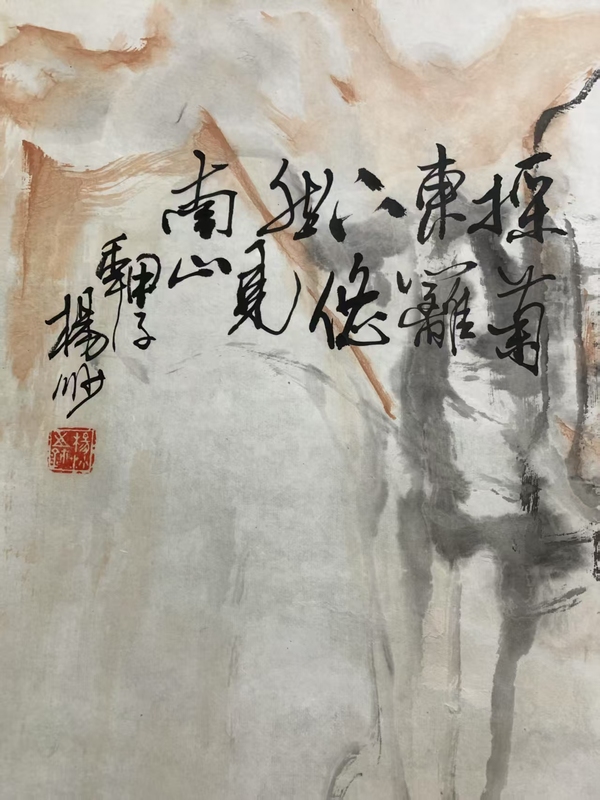 採菊
東籬
下悠
然見
南山
甲子
楊